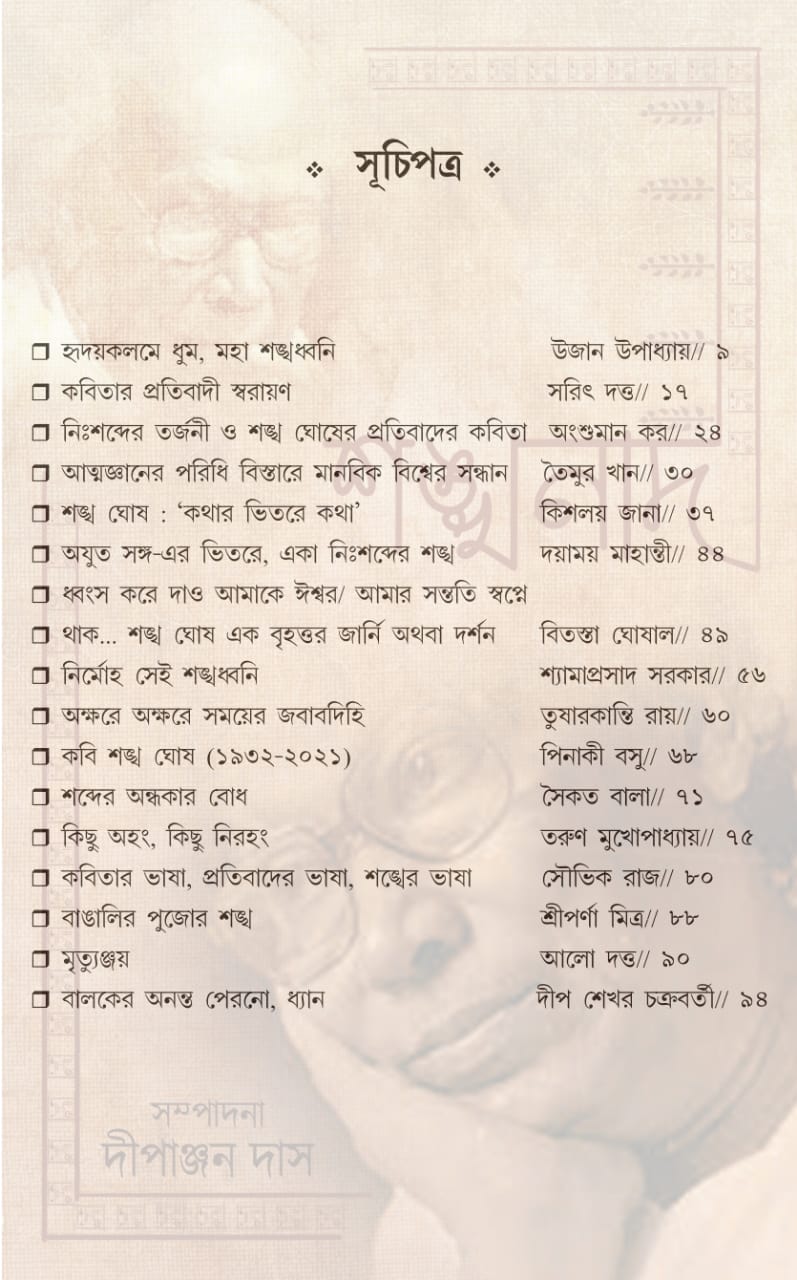 সূচিপত্র
হৃদয়কলমে ধুম, মহা শঙ্খধ্বনি উজান উপাধ্যায়// ৯
কবিতার প্রতিবাদী স্বরায়ণ সরিৎ দত্ত// ১৭
নিঃশব্দের তর্জনী ও শঙ্খ ঘোষের প্রতিবাদের কবিতা অংশুমান কর// ২৪
আত্মজ্ঞানের পরিধি বিস্তারে মানবিক বিশ্বের সন্ধান তৈমুর খান// ৩০
শঙ্খ ঘোষ : ‘কথার ভিতরে কথা’ কিশলয় জানা// ৩৭
অযুত সঙ্গ-এর ভিতরে, একা নিঃশব্দের শঙ্খ দয়াময় মাহান্তী// ৪৪
ধ্বংস করে দাও আমাকে ঈশ্বর/ আমার সন্ততি স্বপ্নে
থাক... শঙ্খ ঘোষ এক বৃহত্তর জার্নি অথবা দর্শন বিতস্তা ঘোষাল// ৪৯
নির্মোহ সেই শঙ্খধ্বনি শ্যামাপ্রসাদ সরকার// ৫৬
অক্ষরে অক্ষরে সময়ের জবাবদিহি তুষারকান্তি রায়// ৬০
কবি শঙ্খ ঘোষ (১৯৩২-২০২১) পিনাকী বসু// ৬৮
শব্দের অন্ধকার বোধ সৈকত বালা// ৭১
কিছু অহং, কিছু নিরহং তরুণ মুখোপাধ্যায়// ৭৫
কবিতার ভাষা, প্রতিবাদের ভাষা, শঙ্খের ভাষা সৌভিক রাজ// ৮০
বাঙালির পুজোর শঙ্খ শ্রীপর্ণা মিত্র// ৮৮
মৃত্যুঞ্জয় আলো দত্ত// ৯০
বালকের অনন্ত পেরনো, ধ্যান দীপ শেখর চক্রবর্তী// ৯৪
শঙ্খনাদ
সম্পাদনা
দীপাঞ্জন দাস